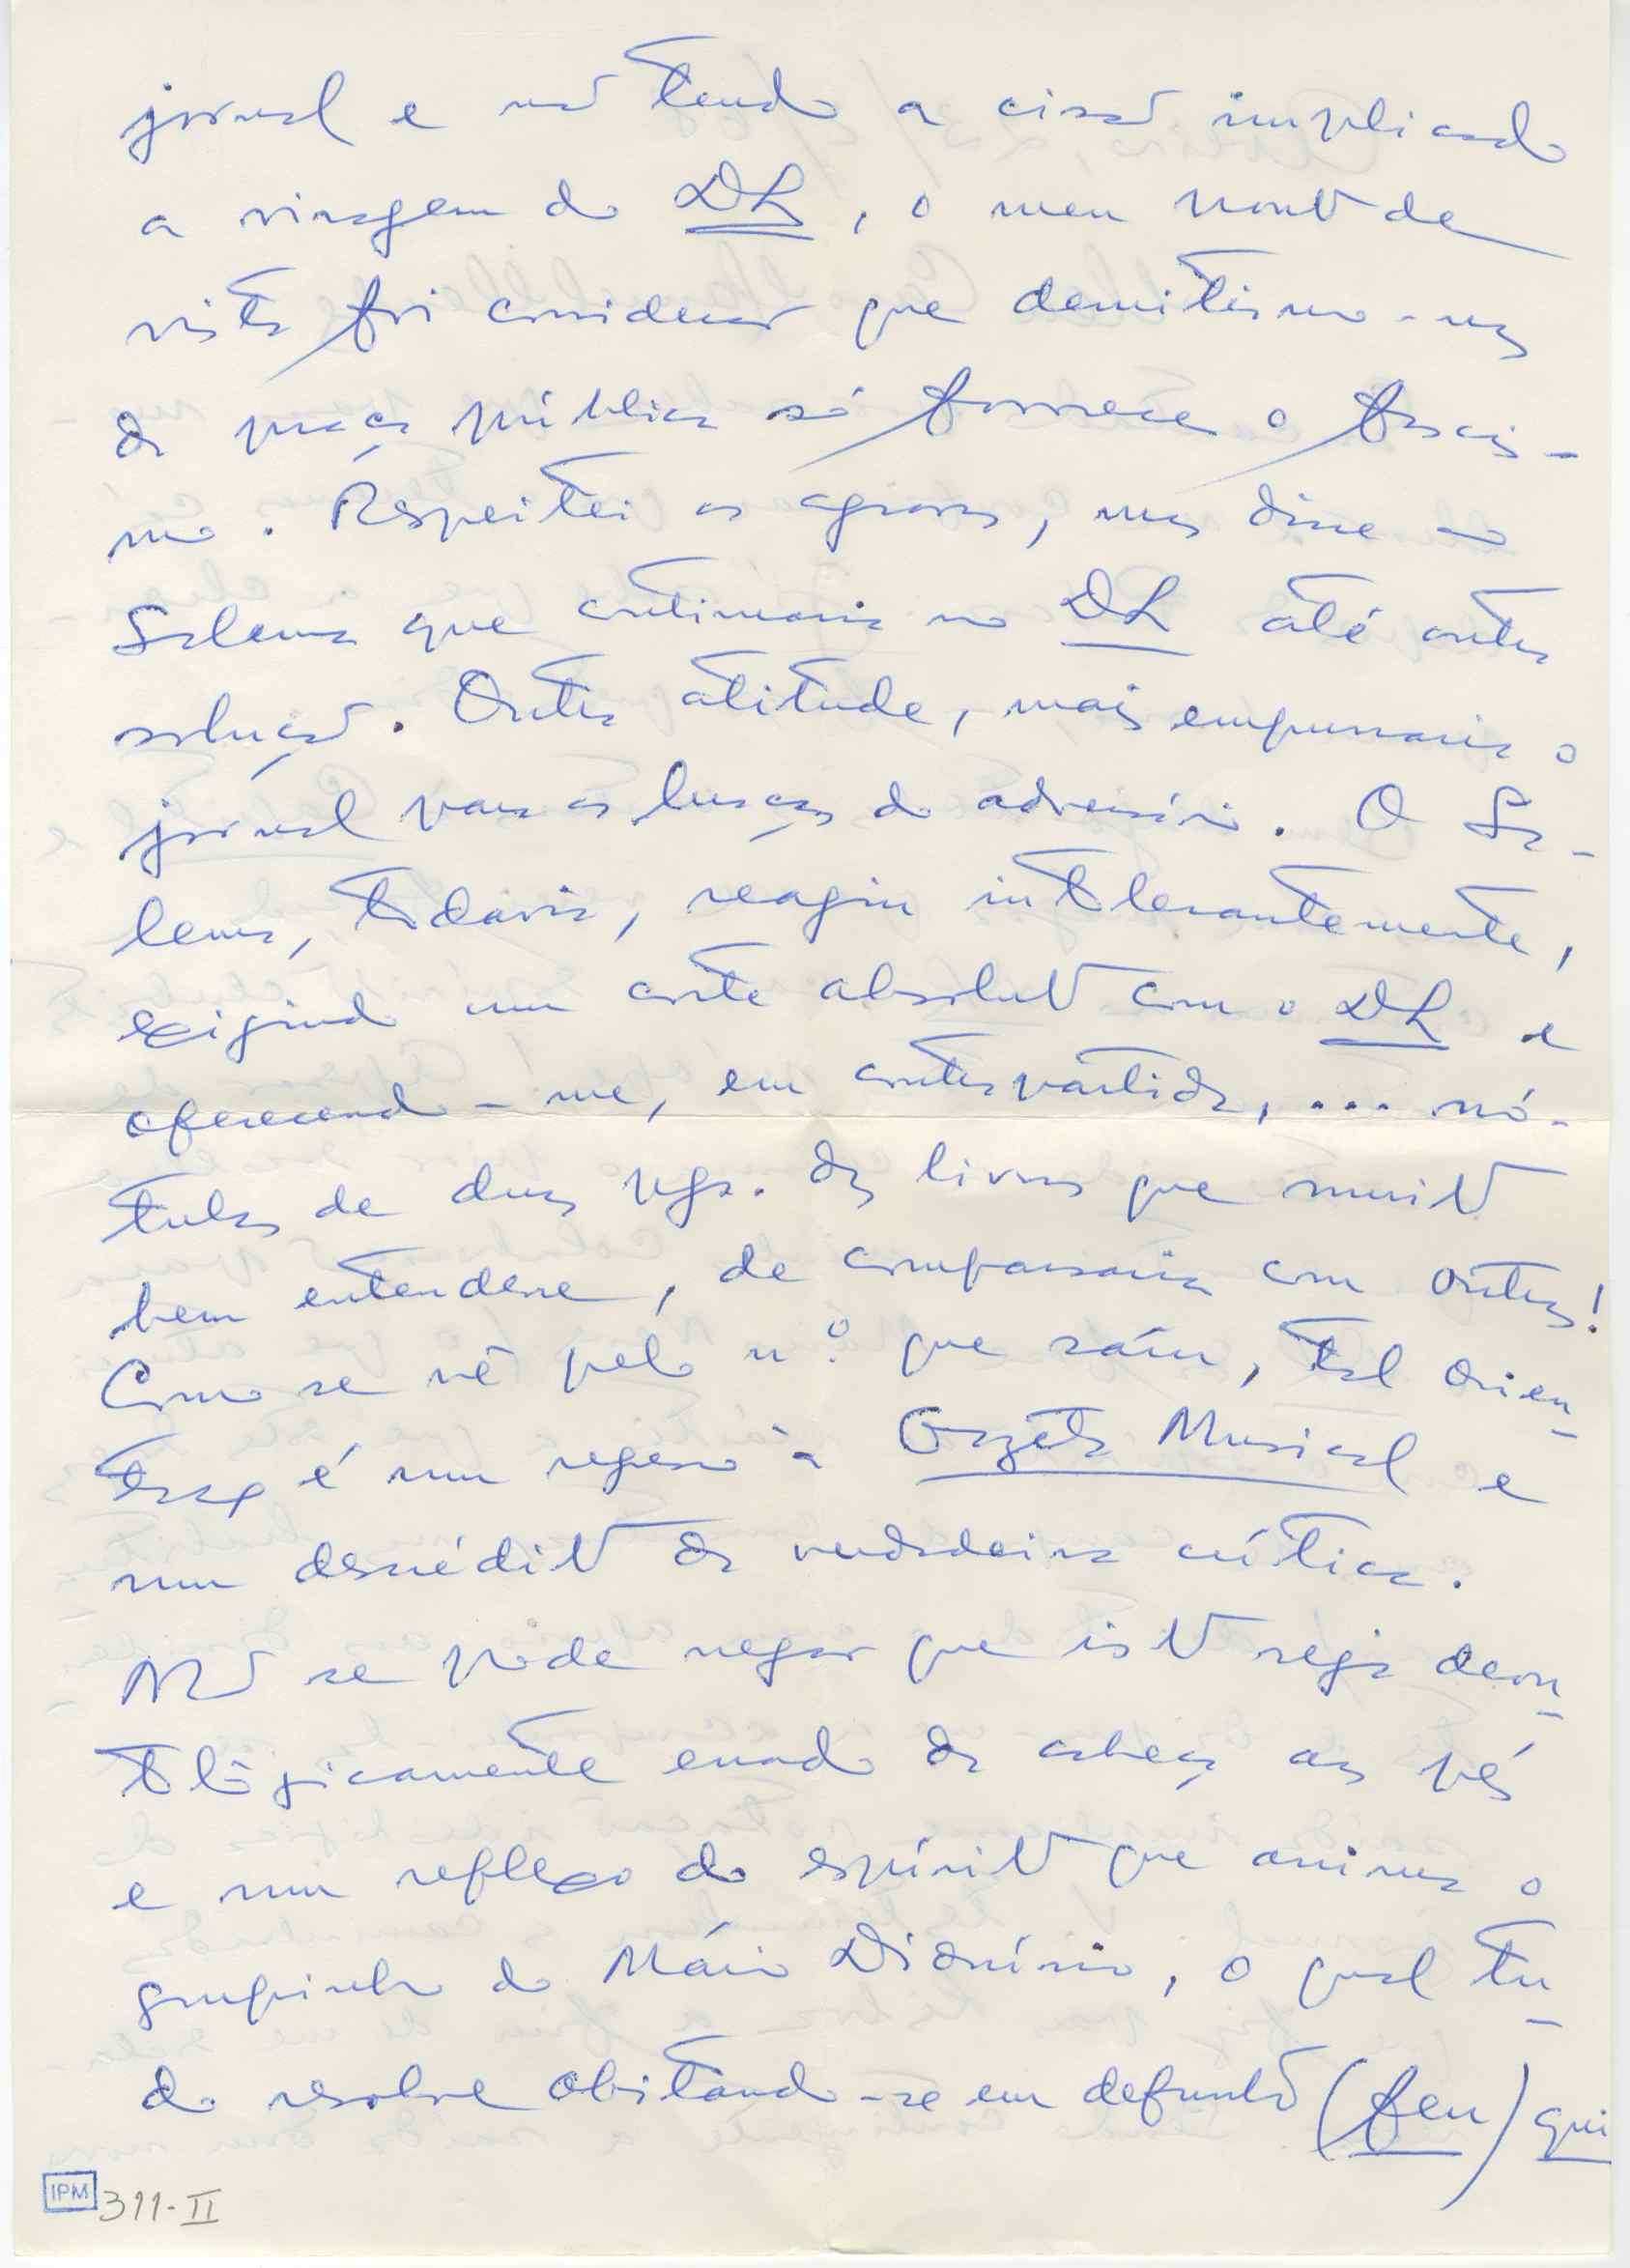 jornal e não tendo a cisão implicado
a viragem do DL, o meu ponto de
vista foi considerar que demitirmo-nos
da praça pública só favorece o fascis-
mo. Respeitei os agravos, mas disse ao
Salema que continuaria no DL até outra
solução. Outra atitude, mais empurraria o
jornal para os braços do adversário. O Sa-
lema, todavia, reagiu intolerantemente,
exigindo um corte absoluto com o DL e
oferecendo-me, em contrapartida, ... nó-
tulas de duas pgs. dos livros que muito
bem entendesse, de comparsaria com outros!
Como se vê pelo nº que saíu, tal orien-
tação é um regresso à Gazeta Musical e
um descrédito da verdadeira crítica.
Não se pode negar que isto seja deon-
tològicamente errado da cabeça aos pés
e um reflexo do espírito que anima o
grupinho do Mário Dionísio, o qual tu-
do resolve obitando-se em defunto (feu) qui
IPM 311-II